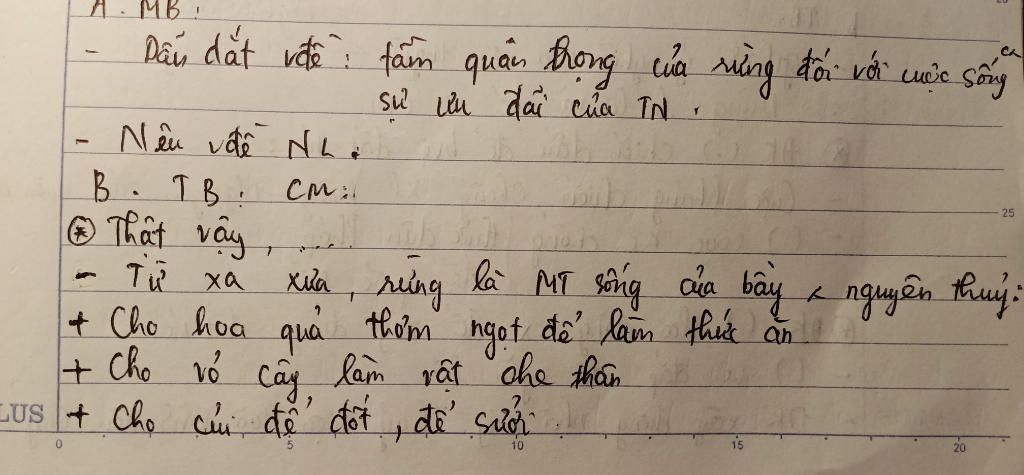 A. MB:
- Dẫn dắt vđề: tầm quan trọng của rừng đối với cuộc sống cn
sự ưu đãi của TN.
- Nêu vđề NL.
B. TB: CM:
25
⊛ Thật vậy, .....
- Từ xa xưa, rừng là MT sống của bầy < nguyên thuỷ:
+ Cho hoa quả thơm ngọt để làm thức ăn
+ Cho vỏ cây làm vật che thân
+ Cho củi để đốt, để sưởi.
LUS
0 5 10 15 20